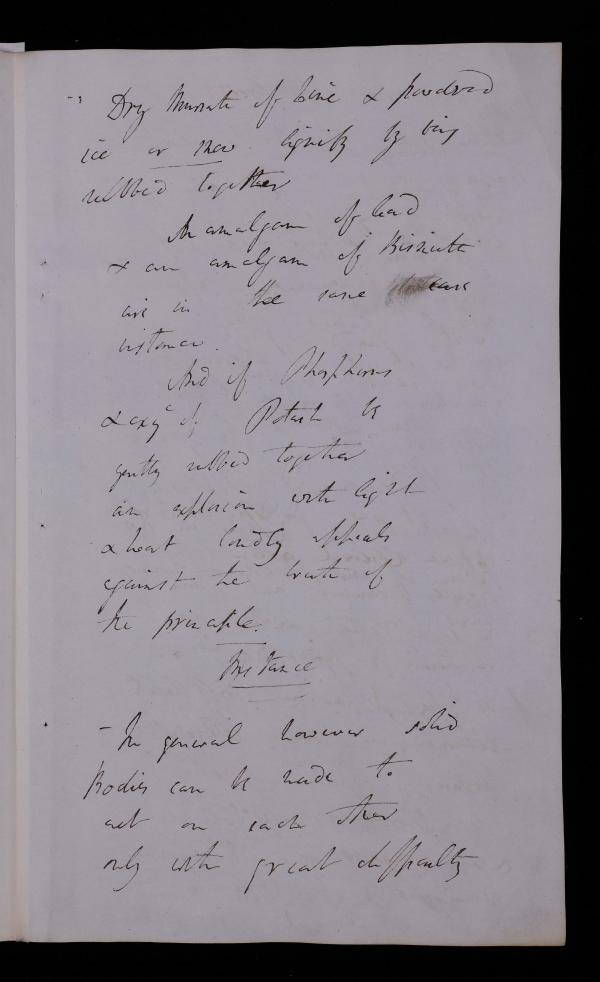 Dry Muriate of lime & powdered
ice or snow liquify by being
rubbed together
An amalgam of lead
& an amalgam of Bismuth
are in the same
instance.
And if Phosphorus
& oxy.c of Potash be
gently rubbed together
an explosion with light
& heat loudly appeals
against the truth of
the principle.
Instance
- In general however solid
Bodies can be made to
act on each other
only with great difficulty